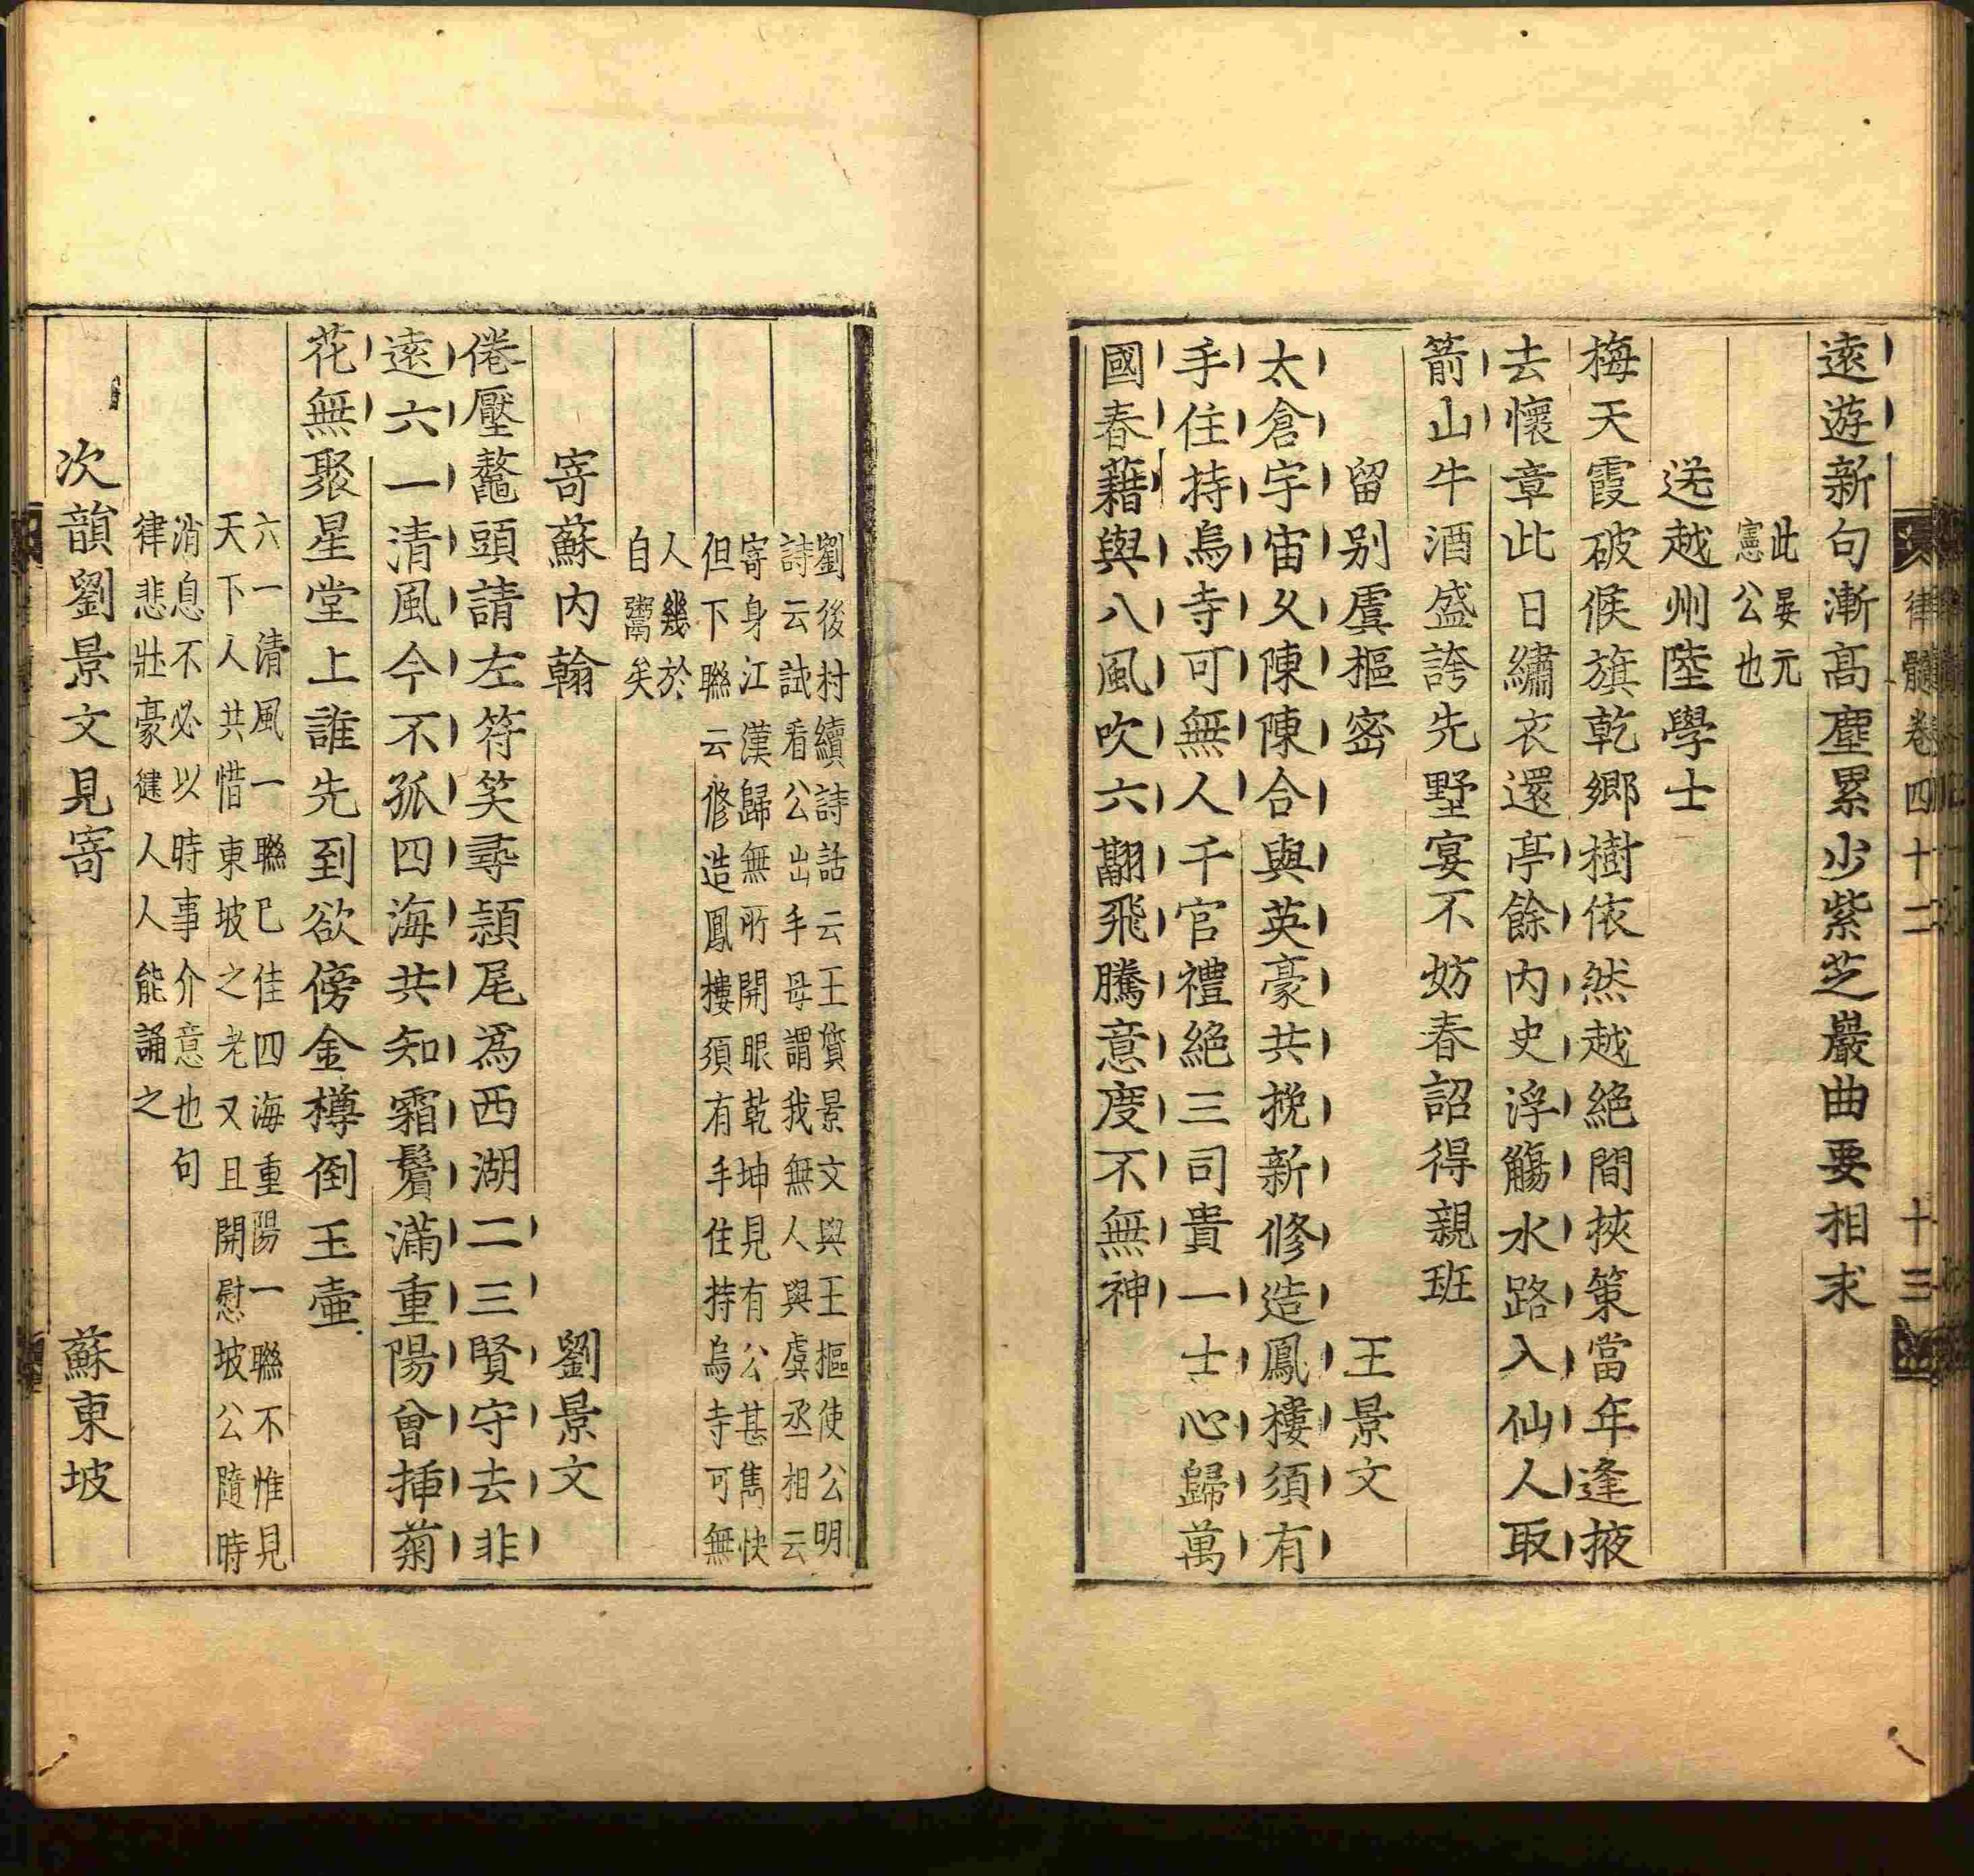 律髓卷四十二 十三
遠遊新句漸高塵累少紫芝巖曲要相求
此晏元
憲公也
送越州陸學士
梅天霞破候旗乾鄉樹依然越絶間挾策當年逢掖
去懷章此日繡衣還亭餘内史浮觴水路入仙人取
箭山牛酒盛誇先墅宴不妨春詔得親班
留别虞樞宻 王景文
太倉宇宙乆陳陳合與英豪共挽新修造鳳樓須有
手住持烏寺可無人千官禮絶三司貴一士心歸萬
國春藉與八風吹六翮飛騰意度不無神
劉後村續詩話云王質景文與王樞使公明
詩云試看公出手毋謂我無人與虞丞相云
寄身江漢歸無所開眼乾坤見有公甚雋快
但下聯云修造鳳樓須有手住持烏寺可無
人幾於
自鬻矣
寄蘇内翰 劉景文
倦壓鼇頭請左符笑尋潁尾爲西湖二三賢守去非
遠六一清風今不孤四海共知霜鬢滿重陽曾挿菊
花無聚星堂上誰先到欲傍金樽倒玉壺
六一清風一聯已佳四海重陽一聯不惟見
天下人共惜東坡之老又且開慰坡公隨時
消息不必以時事介意也句
律悲壯豪健人人能誦之
次韻劉景文見寄 蘇東坡